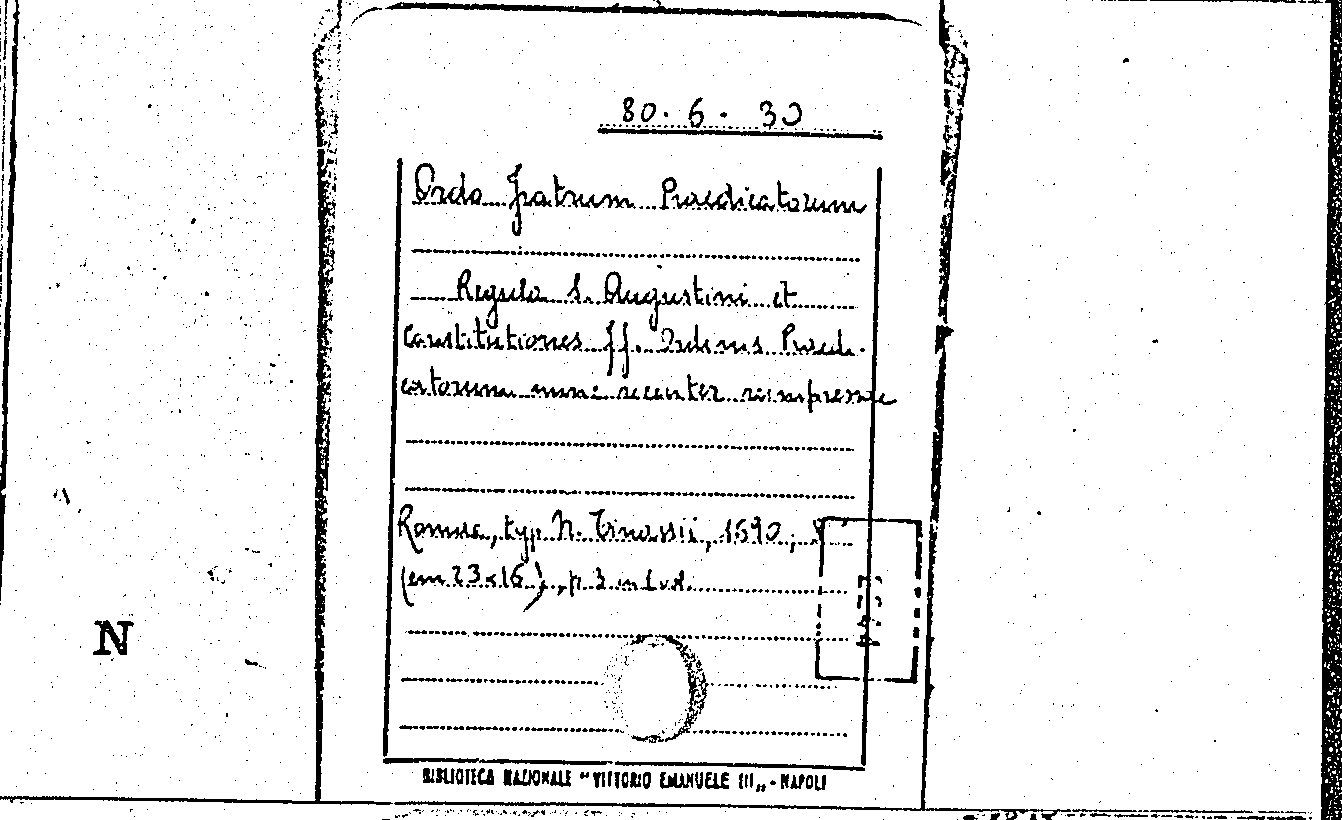 80. 6. 30
Ordo Fratrum Praedicatorum
Regula S. Augustini et
Constitutiones ff. Ordinis Praedi-
catorum nunc recenter reimpressae
Romae, typ. N. Tinassii, 1690,
(cm 23x16), p. 3 in 1 vol.
N
BIBLIOTECA NAZIONALE "VITTORIO EMANUELE III„ - NAPOLI